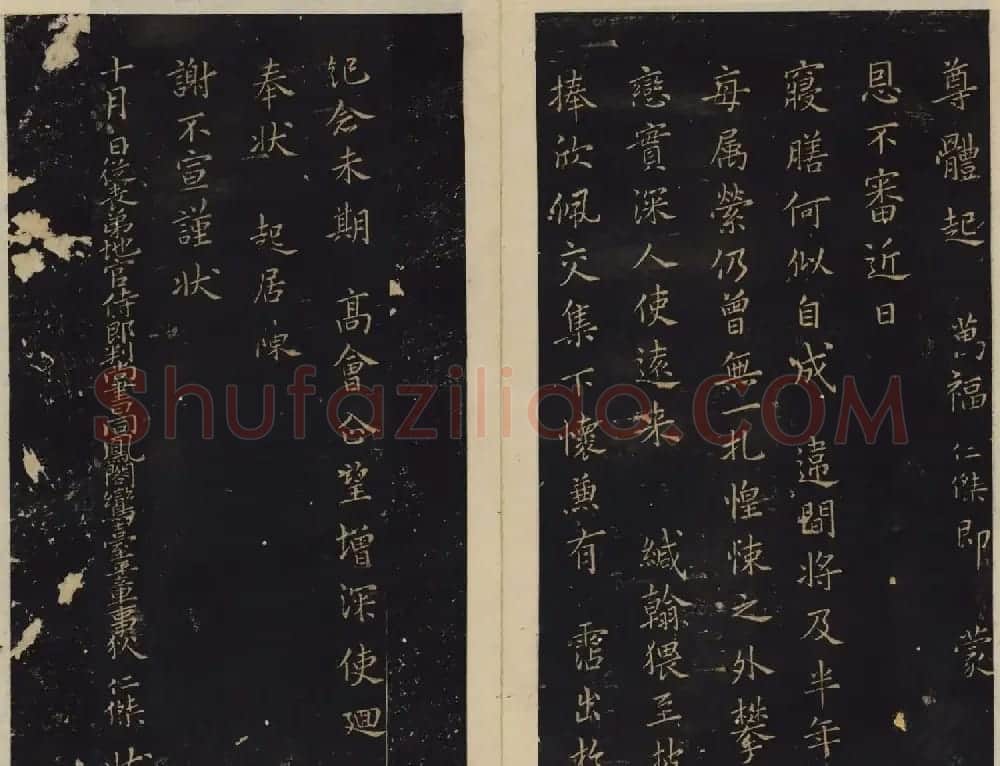 尊體起 萬福仁傑即 蒙
恩不審近日
寢膳何似自成 遠間將及半年
每属縈仍曾無一札惶悚之外攀
戀實深人使遠来 緘翰猥至披
捧欣佩交集下懷兼有 霑出於
紀念未期 髙會企望增深使廻
奉状 起居陳
謝不宣謹状
十月 日從表弟地官侍郎判尚書同鳳閣鸞臺平章事狄 仁傑 状
Shufaziliao.COM